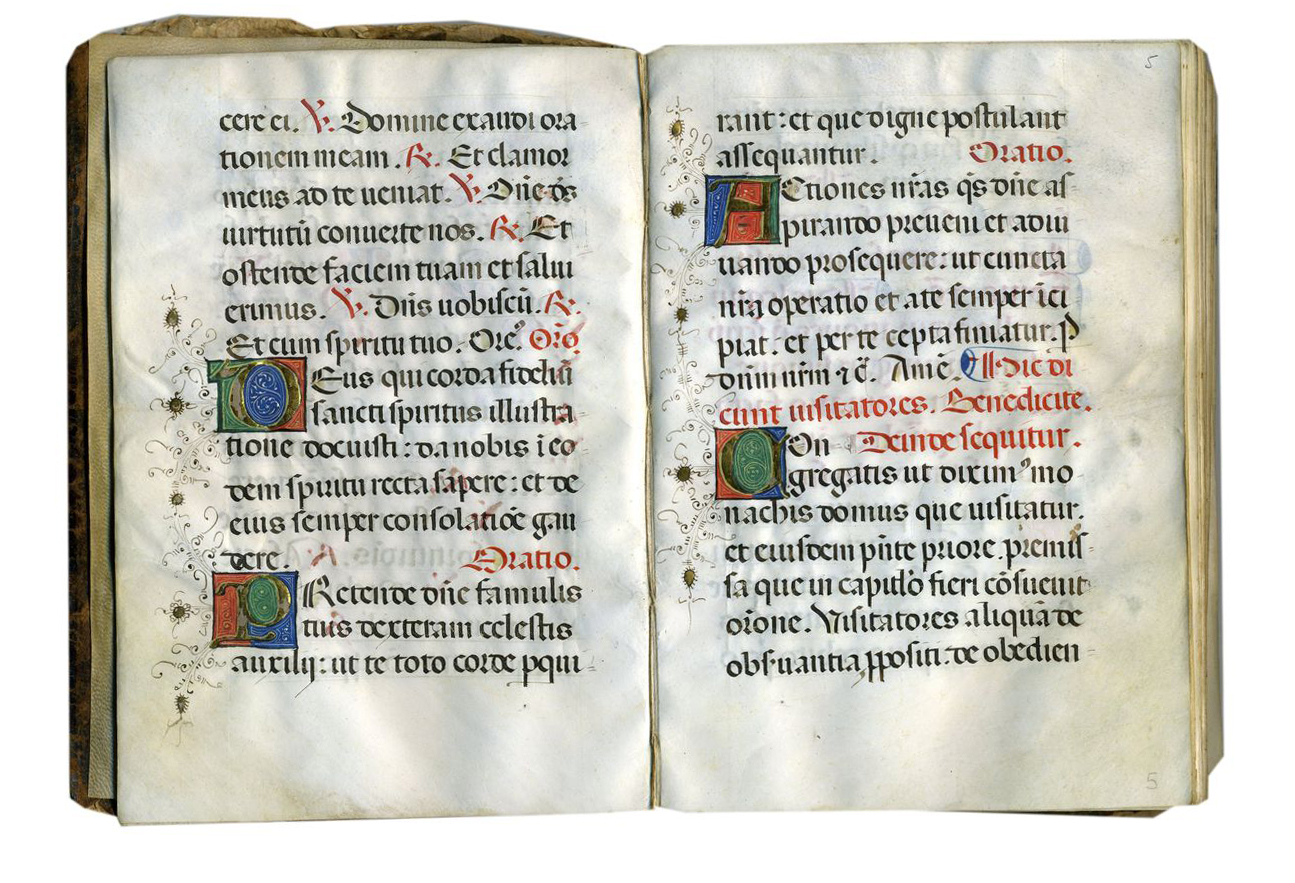 cere ei. V. Domine exaudi ora
tionem meam. R. Et clamor
meus ad te ueniat. V. Dñe ds̄
uirtutū conuerte nos. R. Et
ostende faciem tuam et salui
erimus. V. Dñs uobiscū. R.
Et cum spiritu tuo. Orē. Orō.
Deus qui corda fideliū
sancti spiritus illustra
tione docuisti: da nobis ī eo
dem spiritu recta sapere: et de
eius semper consolatiōe gau
dere. Oratio.
PRetende dñe famulis
tuis dexteram celestis
auxilij: ut te toto corde pqui
5
rant: et que digne postulant
assequantur. Oratio.
ACtiones nr̄as qs̄ dñe as
pirando preueni et adiu
uando prosequere: ut cuncta
nr̄a operatio et a te semper īci
piat: et per te cepta finiatur. P
dnm nrm ⁊ c̄. Amē. Hic di
cunt uisitatores. Benedicite.
COn Deinde sequitur.
gregatis ut diximꝰ mo
nachis domus que uisitatur.
et eiusdem pn̄te priore, premis
sa que in capitulo fieri cōsueuit
orōne. Visitatores aliqua de
obsuantia ꝓpositi: de obedien
5